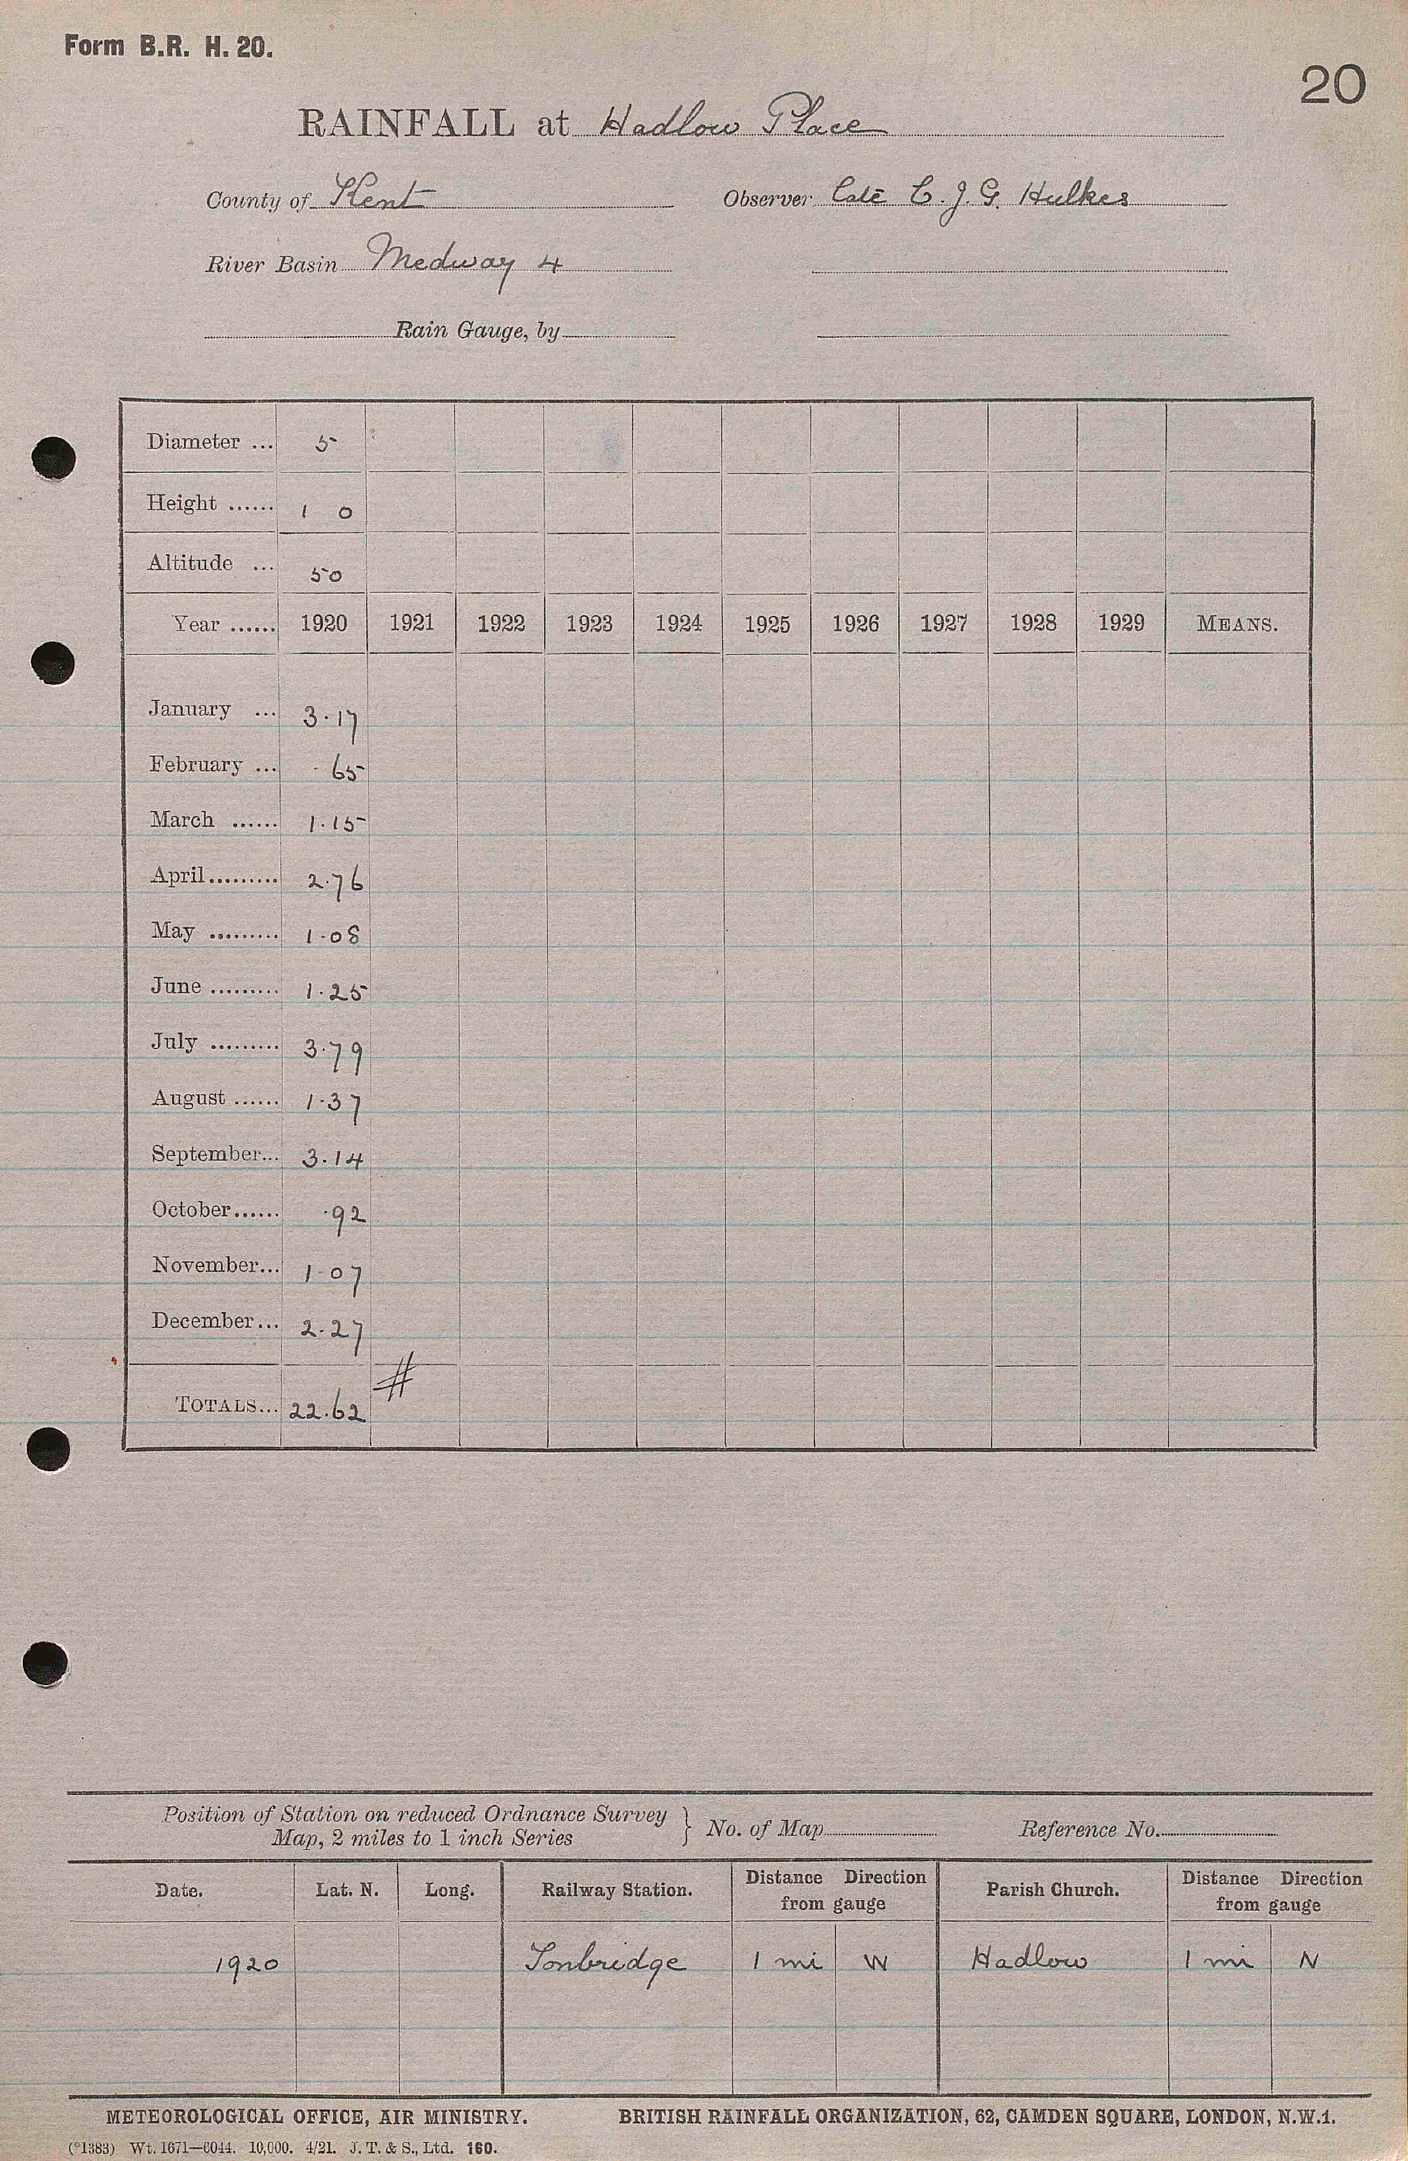 Form B.R. H. 20.
20
RAINFALL at Hadlow Place
County of Kent Observer C. J. G. Hulkes
River Basin Medway 4
Rain Gauge, by
Diameter ... 5
Height ...... 1 0
Altitude ... 50
Year ...... 1920 1921 1922 1923 1924 1925 1926 1927 1928 1929 MEANS.
January ... 3.17
February ... .65
March ...... 1.15
April......... 2.76
May ......... 1.08
June ......... 1.25
July ......... 3.79
August ...... 1.37
September... 3.14
October...... .92
November... 1.07
December... 2.27
TOTALS... 22.62 #
Position of Station on reduced Ordnance Survey
Map, 2 miles to 1 inch Series } No. of Map Reference No.
Date. Lat. N. Long. Railway Station. Distance Direction from gauge Parish Church. Distance Direction from gauge
1920 Tonbridge 1 mi W Hadlow 1 mi N
METEOROLOGICAL OFFICE, AIR MINISTRY. BRITISH RAINFALL ORGANIZATION, 62, CAMDEN SQUARE, LONDON, N.W.1.
(*1383) Wt. 1671—6044. 10,000. 4/21. J. T. & S., Ltd. 160.